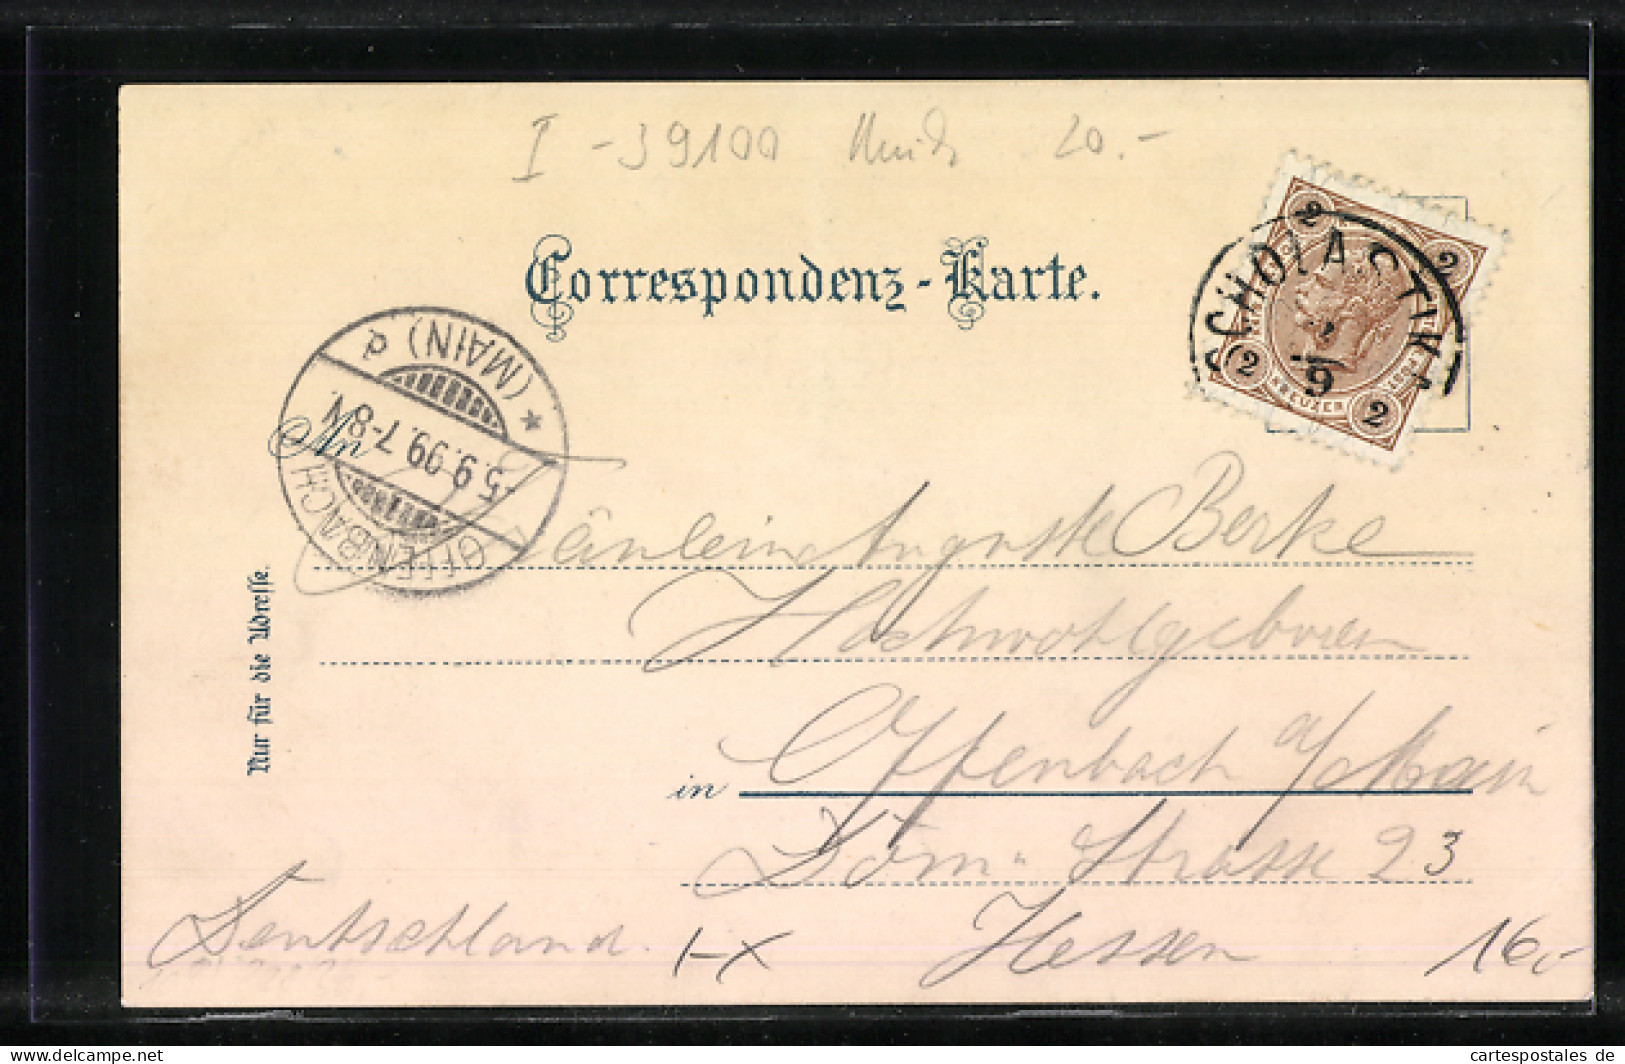 I -39100 20.-
Correspondenz-Karte.
SCHOLASTIKA
2/9
2 2 2 2
KREUZER
OFFENBACH * (MAIN) d
-5.9.99.7-8N.
An Fräulein Auguste Berke
Hochwohlgeboren
in Offenbach a/Main
Dom-Strasse 23
Deutschland. Hessen 16.-
Nur für die Adresse.
cartespostales de